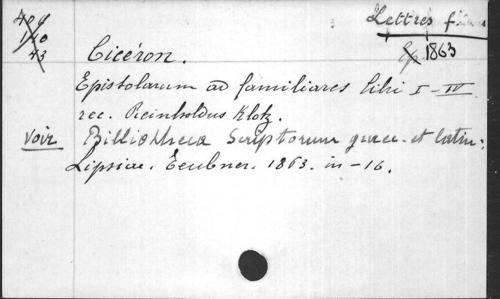 Lettres
409
140
43
Ep. 1863
Cicéron.
Epistolarum ad familiares libri I - IV
rec. Reinholdus Klotz.
Voir Bibliotheca Scriptorum graec. et latin.
Lipsiae. Teubner. 1863. in-16.